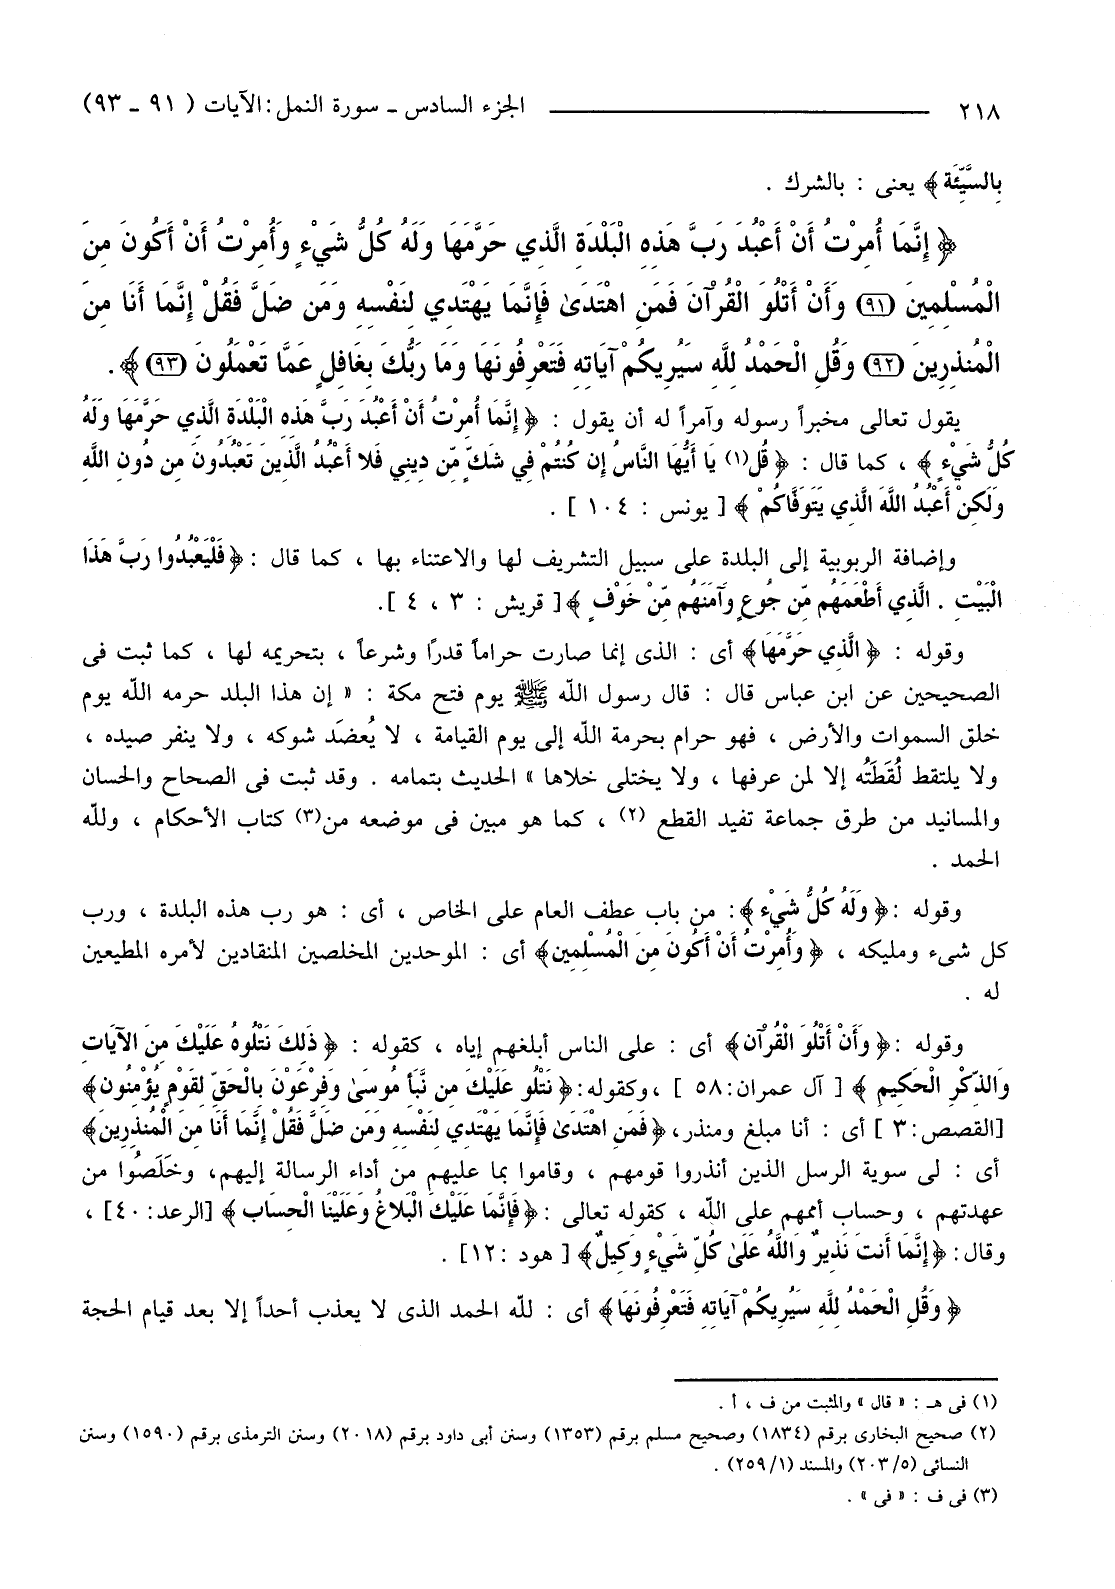 ٢١٨ الجزء السادس ـ سورة النمل : الآيات ( ٩١ ـ ٩٣)
بِالسَّيِّئَة﴾ يعنى : بالشرك .
﴿ إِنَّمَا أُمِرْتُ أَنْ أَعْبُدَ رَبَّ هَذِهِ الْبَلْدَةِ الَّذِي حَرَّمَهَا وَلَهُ كُلُّ شَيْءٍ وَأُمِرْتُ أَنْ أَكُونَ مِنَ
الْمُسْلِمِينَ (٩١) وَأَنْ أَتْلُوَ الْقُرْآنَ فَمَنِ اهْتَدَىٰ فَإِنَّمَا يَهْتَدِي لِنَفْسِهِ وَمَن ضَلَّ فَقُلْ إِنَّمَا أَنَا مِنَ
الْمُنذِرِينَ (٩٢) وَقُلِ الْحَمْدُ لِلَّهِ سَيُرِيكُمْ آيَاتِهِ فَتَعْرِفُونَهَا وَمَا رَبُّكَ بِغَافِلٍ عَمَّا تَعْمَلُونَ (٩٣) ﴾ .
يقول تعالى مخبراً رسوله وآمراً له أن يقول : ﴿ إِنَّمَا أُمِرْتُ أَنْ أَعْبُدَ رَبَّ هَذِهِ الْبَلْدَةِ الَّذِي حَرَّمَهَا وَلَهُ
كُلُّ شَيْءٍ ﴾ ، كما قال : ﴿ قُل(١) يَا أَيُّهَا النَّاسُ إِن كُنتُمْ فِي شَكٍّ مِّن دِينِي فَلا أَعْبُدُ الَّذِينَ تَعْبُدُونَ مِن دُونِ اللَّهِ
وَلَكِنْ أَعْبُدُ اللَّهَ الَّذِي يَتَوَفَّاكُمْ ﴾ [ يونس : ١٠٤ ] .
وإضافة الربوبية إلى البلدة على سبيل التشريف لها والاعتناء بها ، كما قال : ﴿ فَلْيَعْبُدُوا رَبَّ هَذَا
الْبَيْتِ . الَّذِي أَطْعَمَهُم مِّن جُوعٍ وَآمَنَهُم مِّنْ خَوْفٍ ﴾[ قريش : ٣ ، ٤ ].
وقوله : ﴿ الَّذِي حَرَّمَهَا﴾ أى : الذى إنما صارت حراماً قدرًا وشرعاً ، بتحريمه لها ، كما ثبت فى
الصحيحين عن ابن عباس قال : قال رسول الله ﷺ يوم فتح مكة : « إن هذا البلد حرمه الله يوم
خلق السموات والأرض ، فهو حرام بحرمة الله إلى يوم القيامة ، لا يُعضَد شوكه ، ولا ينفر صيده ،
ولا يلتقط لُقَطَتُه إلا لمن عرفها ، ولا يختلى خلاها » الحديث بتمامه . وقد ثبت فى الصحاح والحسان
والمسانيد من طرق جماعة تفيد القطع (٢) ، كما هو مبين فى موضعه من(٣) كتاب الأحكام ، ولله
الحمد .
وقوله :﴿ وَلَهُ كُلُّ شَيْءٍ ﴾: من باب عطف العام على الخاص ، أى : هو رب هذه البلدة ، ورب
كل شىء ومليكه ، ﴿ وَأُمِرْتُ أَنْ أَكُونَ مِنَ الْمُسْلِمِين﴾ أى : الموحدين المخلصين المنقادين لأمره المطيعين
له .
وقوله :﴿ وَأَنْ أَتْلُوَ الْقُرْآن﴾ أى : على الناس أبلغهم إياه ، كقوله : ﴿ ذَلِكَ نَتْلُوهُ عَلَيْكَ مِنَ الآيَاتِ
وَالذِّكْرِ الْحَكِيمِ ﴾ [ آل عمران:٥٨ ] ،وكقوله:﴿ نَتْلُو عَلَيْكَ مِن نَّبَأِ مُوسَىٰ وَفِرْعَوْنَ بِالْحَقِّ لِقَوْمٍ يُؤْمِنُون﴾
[القصص:٣ ] أى : أنا مبلغ ومنذر، ﴿فَمَنِ اهْتَدَىٰ فَإِنَّمَا يَهْتَدِي لِنَفْسِهِ وَمَن ضَلَّ فَقُلْ إِنَّمَا أَنَا مِنَ الْمُنذِرِين﴾
أى : لى سوية الرسل الذين أنذروا قومهم ، وقاموا بما عليهم من أداء الرسالة إليهم، وخَلَصُوا من
عهدتهم ، وحساب أممهم على الله ، كقوله تعالى :﴿فَإِنَّمَا عَلَيْكَ الْبَلاغُ وَعَلَيْنَا الْحِسَاب﴾ [الرعد:٤٠] ،
وقال:﴿إِنَّمَا أَنتَ نَذِيرٌ وَاللَّهُ عَلَىٰ كُلِّ شَيْءٍ وَكِيلٌ﴾ [ هود :١٢] .
﴿ وَقُلِ الْحَمْدُ لِلَّهِ سَيُرِيكُمْ آيَاتِهِ فَتَعْرِفُونَهَا﴾ أى : لله الحمد الذى لا يعذب أحداً إلا بعد قيام الحجة
(١) فى هـ : « قال » والمثبت من ف ، أ .
(٢) صحيح البخارى برقم (١٨٣٤) وصحيح مسلم برقم (١٣٥٣) وسنن أبى داود برقم (٢٠١٨) وسنن الترمذى برقم (١٥٩٠) وسنن
النسائى (٢٠٣/٥) والمسند (٢٥٩/١) .
(٣) فى ف : « فى » .